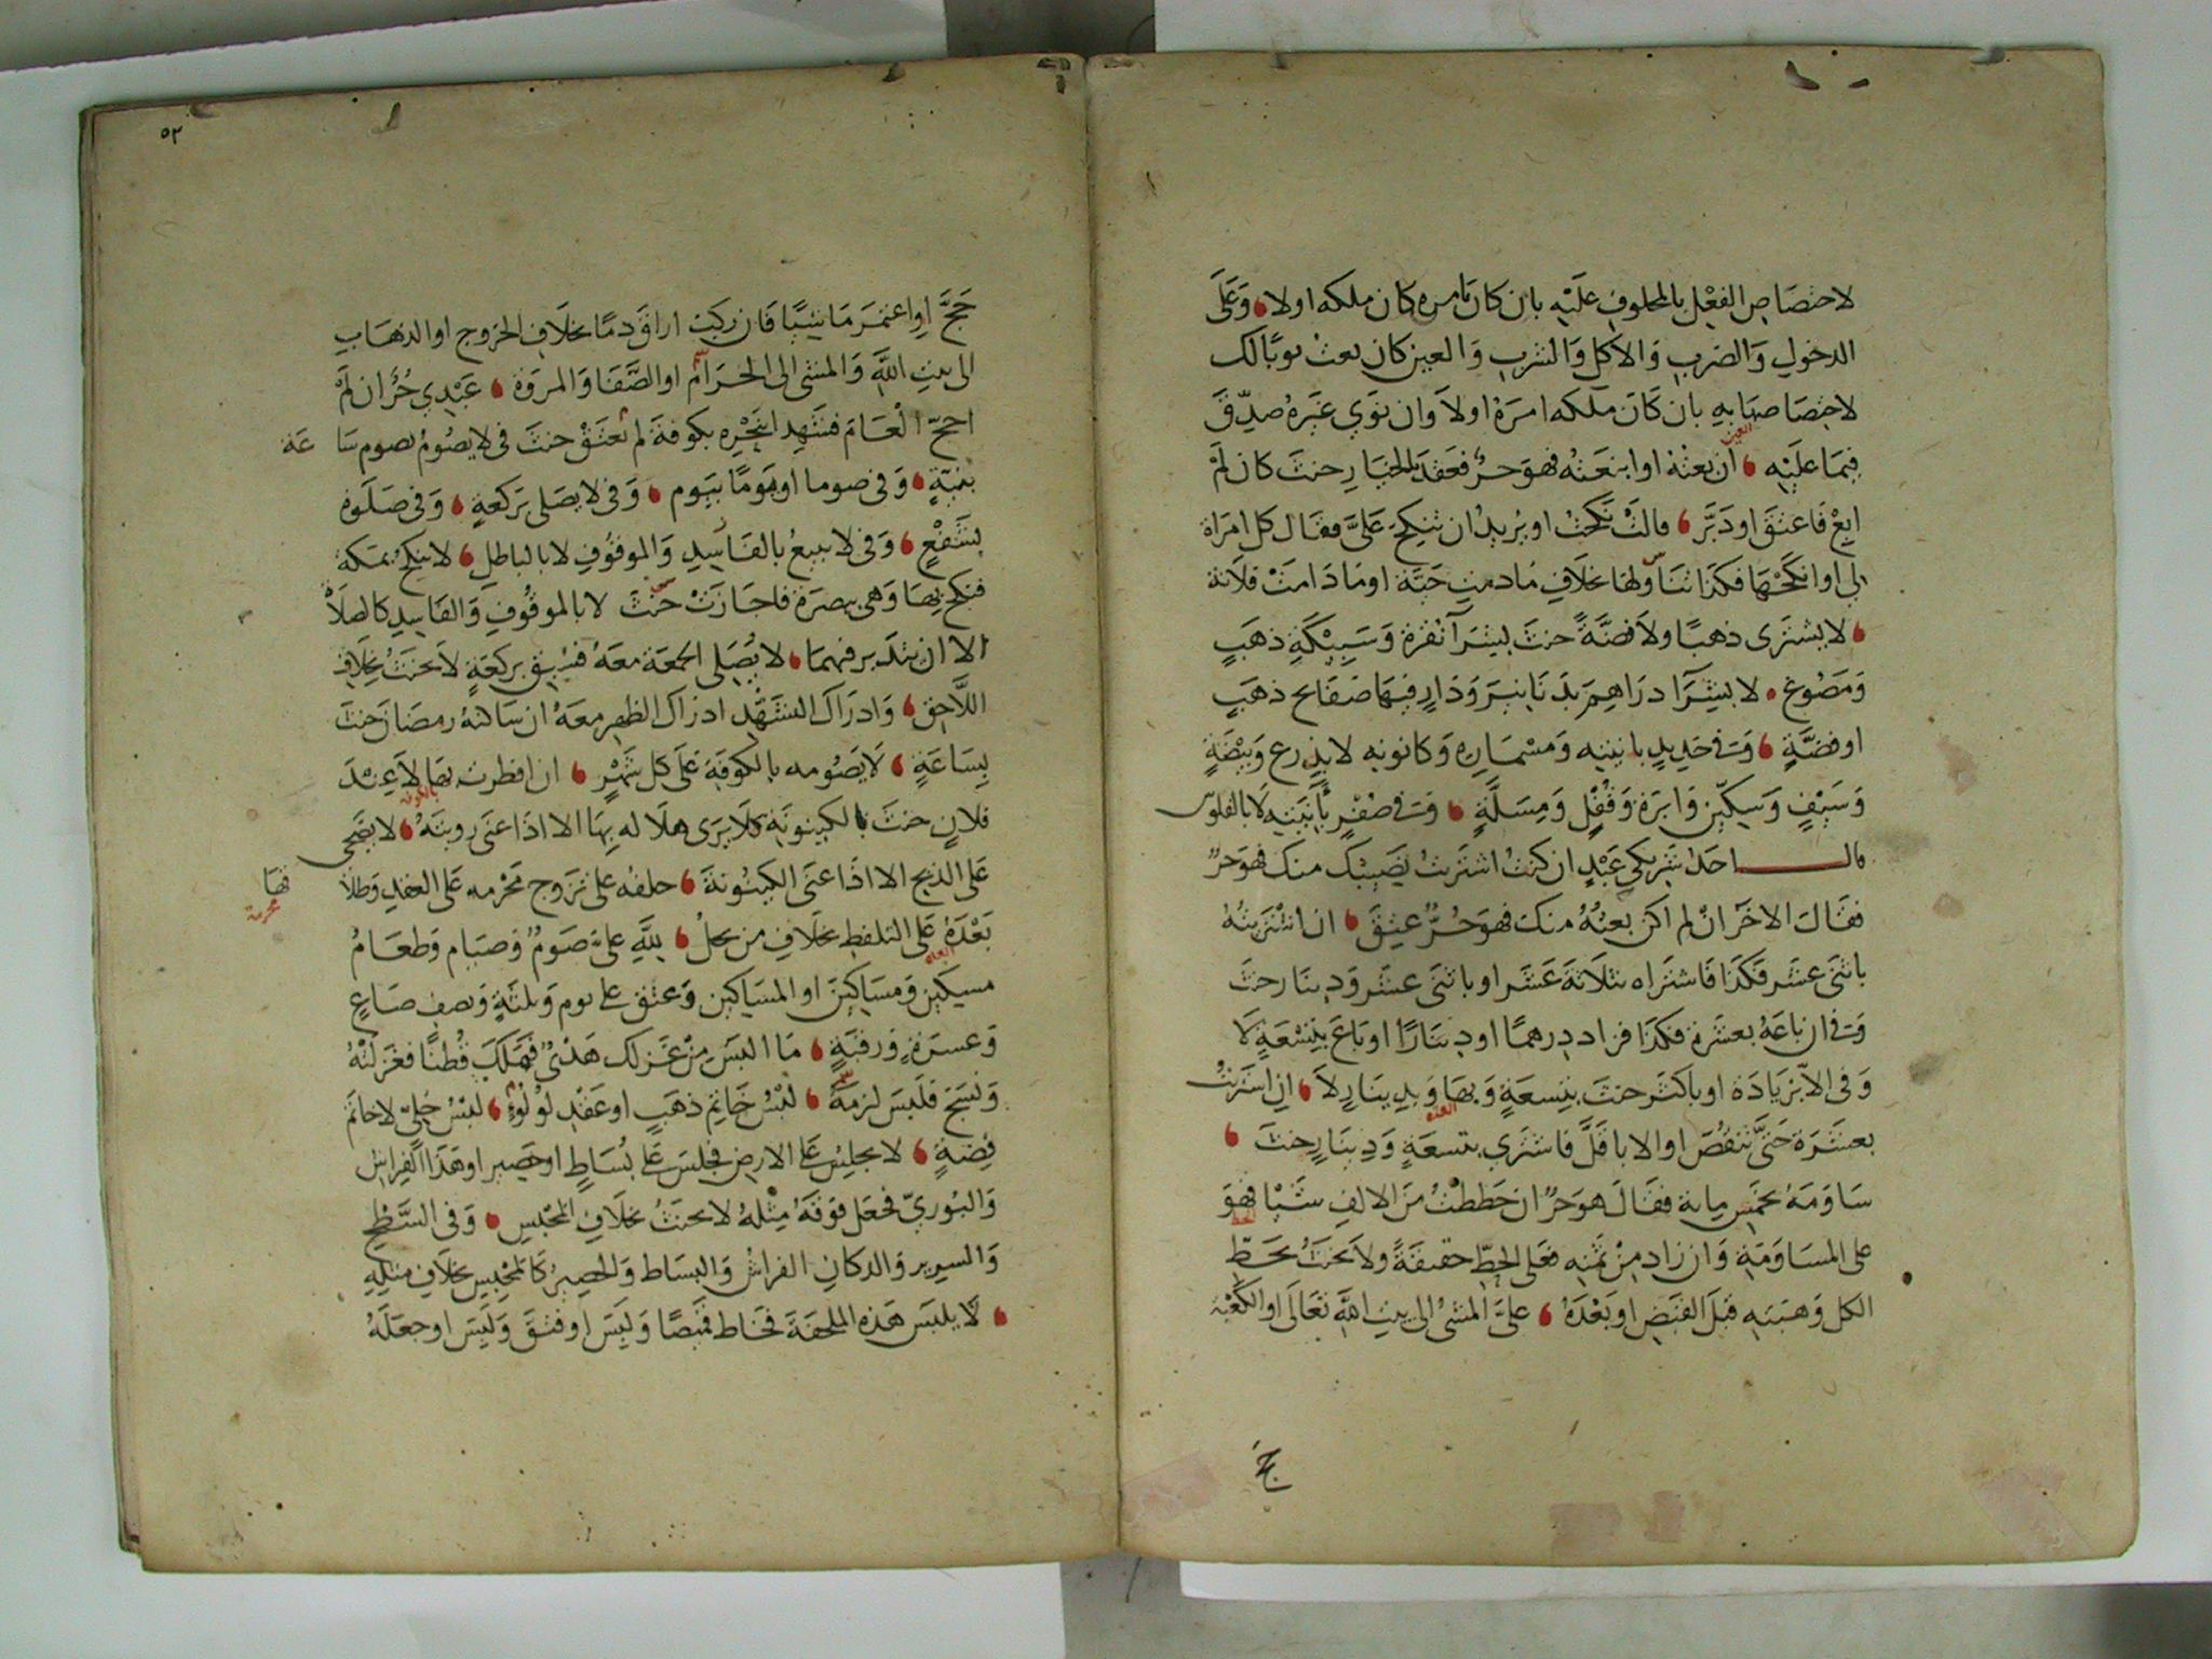 لاختصاص الفعل بالمحلوف عليه بان كان بامره كان ملكه اولا وعلى
الدخول والضرب والاكل والشرب والعين كان بعت ثوبا لك
لاختصاصها به بان كان ملكه امره اولا وان نوى غيره صدق
فيما عليه ان بعته او ابتعته فهو حر فعقد بالخيار حنث كان لم
العين
ابع فاعتق او دبر قالت نكحت او يريد ان تنكح على فقال كل امراة
لى او انكحتها فكذا ولها بخلاف مادمت حية او ما دامت فلانة
لا يشترى ذهبا ولا فضة حنث بشرآ نقرة وسبيكة ذهب
ومصوغ لا بشرا دراهم بدنانير ودار فيها صفايح ذهب
او فضة وفى حديد بانيته ومسماره وكانونه لا بدرع وبيضة
وسيف وسكين وابرة وقفل ومسلة وفى صفر بانيته لا بالفلوس
قال احد شريكي عبد ان كنت اشتريت نصيبك منك فهو حر
فقال الاخر ان لم اكن بعته منك فهو حر عتق ان اشتريته
باثنى عشر فكذا فاشتراه بثلاثة عشر او باثنى عشر ودينار حنث
وفى ان باعه بعشرة فكذا فزاد درهما او دينارا او باع بتسعة لا
وفى الا بزيادة او باكثر حنث بتسعة وبها وبدينار لا ان اشتريت
بعشرة حتى تنقص او الا باقل فاشترى بتسعة ودينار حنث
ساومه بخمس ماية فقال هو حر ان حططت من الالف شيا فهو
على المساومة وان زاد من ثمنه فعلى الحط حقيقة ولا يحنث بحط
الكل وهبته قبل القبض او بعده على المشى الى بيت الله تعالى او الكعبة
حج
٥٢
حج او اعتمر ماشيا فان ركب اراق دما بخلاف الخروج او الذهاب
الى بيت الله والمشى الى الحرام او الصفا والمروة عبدي حر ان لم
احج العام فشهد بنحره بكوفة لم تعتق حنث فى لا يصوم بصوم ساعة
بنية وفى صوما او يوما بيوم وفى لا يصلى بركعة وفى صلوة
بشفع وفى لا يبيع بالفاسد والموقوف لا بالباطل لا ينكح بمكة
فنكح بها وهى ببصرة فاجازت حنث لا بالموقوف والفاسد كالصلاة
الا ان يتدبر فيهما لا يصلى الجمعة معه فسبق بركعة لا يحنث بخلاف
اللاحق وادراك التشهد ادراك الظهر معه ان ساكنه رمضان حنث
بساعة لا يصومه بالكوفة على كل شهر ان افطرت بها لا عند
بالكوفة
فلان حنث بالكينونة كلا يرى هلاله بها الا اذا عنى رويته لا يضحى
على الذبح الا اذا عنى الكينونة حلفه على تزوج محرمه على العقد وطلاقها
محرمة
بعده على التلفظ بخلاف من يحل لله على صوم وصيام وطعام
مسكين ومساكين او المساكين وعتق على يوم وثلثة ونصف صاع
وعشرة ورقبة ما البس من غزلك هدى فملك قطنا فغزلته
ونسج فلبس لزمه لبس خاتم ذهب او عقد لولو لبس حلى لا خاتم
فضة لا يجلس على الارض فجلس على بساط او حصير او هذا الفراش
والبورى فجعل فوقه مثله لا يحنث بخلاف المجلس وفى السطح
والسرير والدكان الفراش والبساط والحصير كالمجلس بخلاف مثله
لا يلبس هذه الملحفة فخاط قميصا ولبس او فتق ولبس او جعله